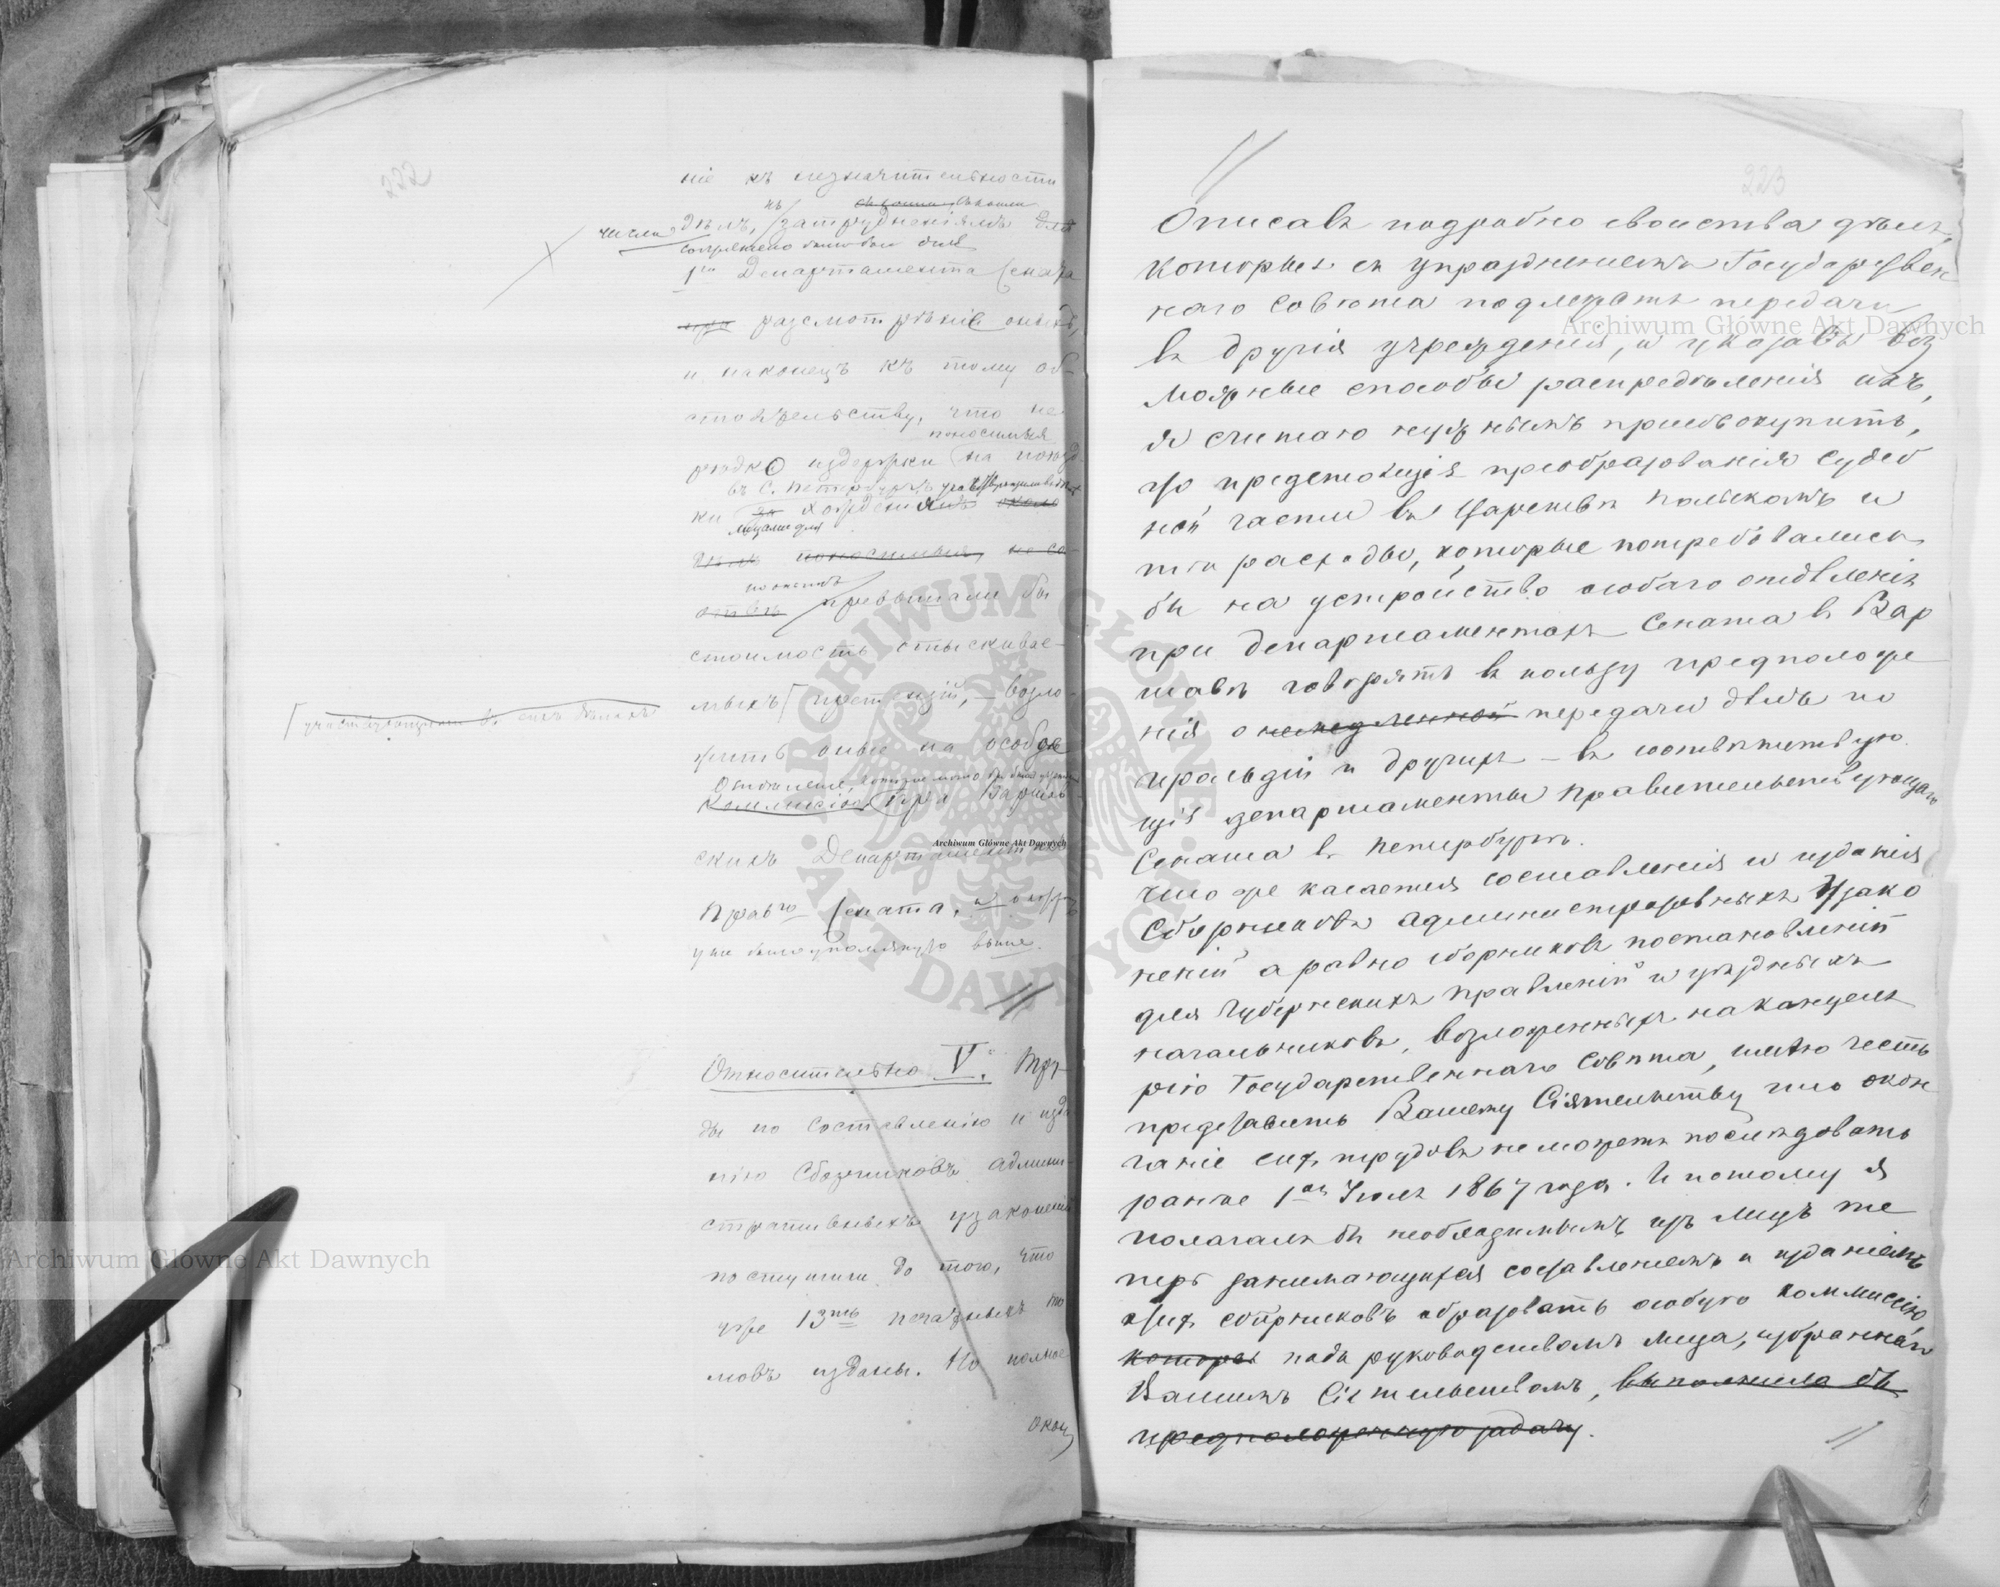 222
ніе къ незначительности
къ
числа дѣлъ, затрудненіямъ для
сопряжено было бы для
1го Департамента Сената
разсмотрѣніе оныхъ,
и наконецъ къ тому об-
стоятельству, что не
понесимыя
рѣдко издержки на поѣзд-
въ С. Петербургъ участвующими въ
ки за хожденіемъ около
лицами для
дѣлъ понесимыя, не со-
превышали бы
стоимость отыскивае-
мыхъ претензій, — возло-
участвующими въ сихъ дѣлахъ
жить оные на особое
Отдѣленіе,
Коммисію при Варшав-
скихъ Департаментахъ
Правго Сената, о
уже было упомянуто выше.
Относительно V. Тру-
ды по составленію и изда-
нію Сборниковъ админи-
стративныхъ узаконеній
поступили до того, что
уже 13ть печатныхъ то-
мовъ изданы. Но полное
окон
223
Описавъ подробно свойства дѣлъ,
которыя съ упраздненіемъ Государствен
наго Совѣта подлежатъ передачи
въ другія учрежденія, и указавъ воз
можные способы распредѣленія ихъ,
я считаю нужнымъ присовокупить,
что предстоящія преобразованія судеб
ной части въ Царствѣ Польскомъ и
тѣ расходы, которые потребовались
бы на устройство особаго отдѣленія
при департаментахъ Сената въ Вар
шавѣ говорятъ въ пользу предположе
нія о немедленной передачи дѣлъ по
иральдіи и другихъ — въ соотвѣтствую
щія департаменты Правительствующаго
Сената въ Петербургѣ.
Что же касается составленія и изданія
Сборниковъ административныхъ Узако
неній а равно сборниковъ постановленій
для Губернскихъ Правленій и уѣздныхъ
начальниковъ, возложенныхъ на канцеля
рію Государственнаго Совѣта, имѣю честь
представить Вашему Сіятельству что окон
чаніе сихъ трудовъ не можетъ послѣдовать
ранѣе 1го Іюля 1867 года. И потому я
полагалъ бы необходимымъ изъ лицъ те
перь занимающихся составленіемъ и изданіемъ
этихъ сборниковъ образовать особую коммиссію
которая подъ руководствомъ лица, избраннаго
Вашимъ Сіятельствомъ, выполнила бы
предположенную задачу.
Archiwum Główne Akt Dawnych
Archiwum Główne Akt Dawnych
Archiwum Główne Akt Dawnych
ARCHIWUM GŁÓWNE AKT DAWNYCH